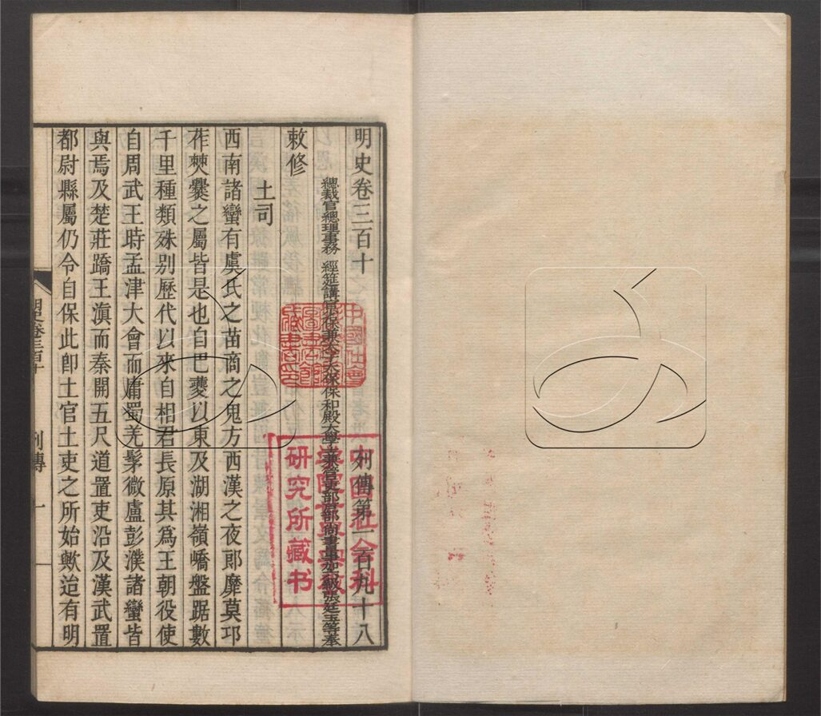 明史卷三百十 列傳第一百九十八
總裁官總理事務 經筵講官少保兼太子太保保和殿大學士兼管吏部戶部尚書事加六級張廷玉等奉
敕修
土司
西南諸蠻有虞氏之苗商之鬼方西漢之夜郎靡莫邛
莋僰爨之屬皆是也自巴夔以東及湖湘嶺嶠盤踞數
千里種類殊別歷代以來自相君長原其為王朝役使
自周武王時孟津大會而庸蜀羌髳微盧彭濮諸蠻皆
與焉及楚莊蹻王滇而秦開五尺道置吏沿及漢武置
都尉縣屬仍令自保此卽土官土吏之所始歟迨有明
明史卷三百十 列傳 一
中國社會科學院世界宗教研究所藏书